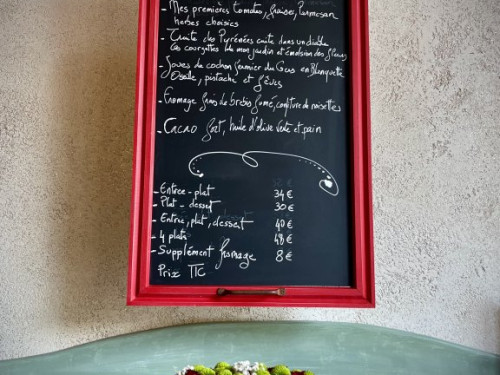 - Mes premières tomates, fraises, Parmesan
herbes choisies
- Truite des Pyrénées cuite dans un diable
Les courgettes de mon jardin et émulsion des fleurs
- Joues de cochon fermier du Gers en Blanquette
Oseille, pistache et fèves
- Fromage frais de brebis fumé, confiture de noisettes
- Cacao fort, huile d'olive verte et pain
- Entrée - plat 34 €
- Plat - dessert 30 €
- Entrée, plat, dessert 40 €
- 4 plats 48 €
- Supplément fromage 8 €
Prix TTC